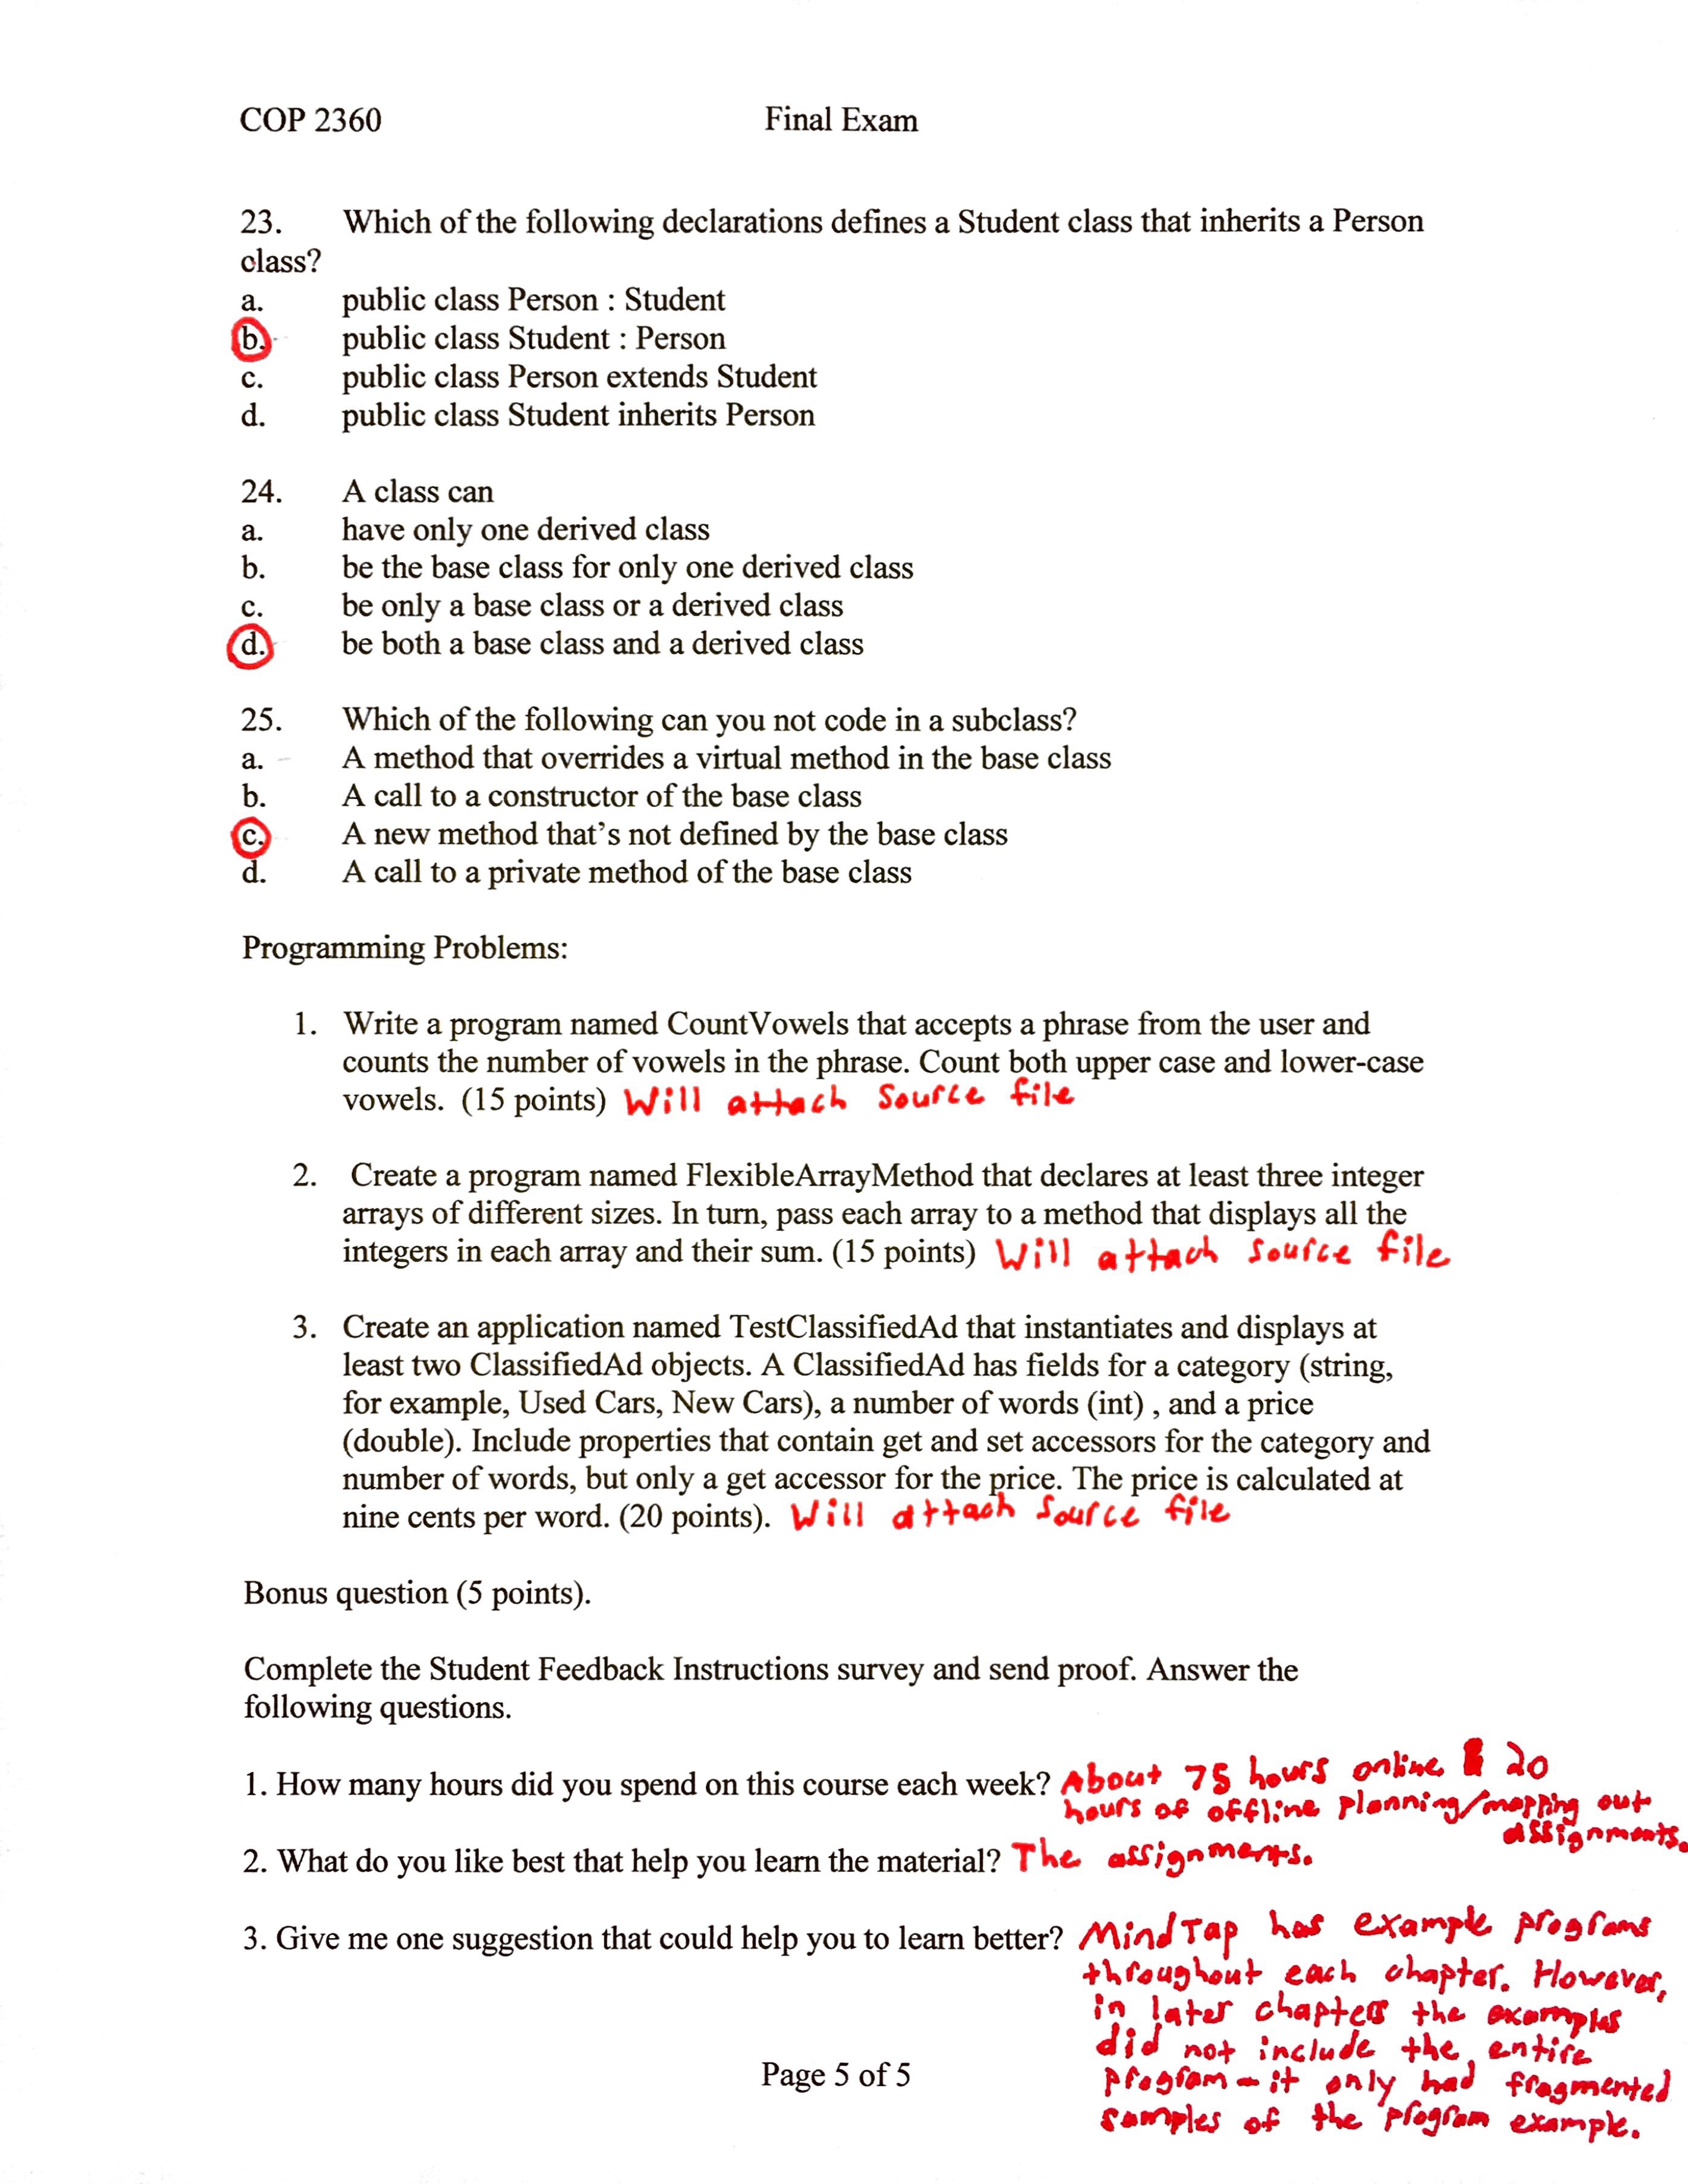 COP 2360 Final Exam
23. Which of the following declarations defines a Student class that inherits a Person
class?
a. public class Person : Student
b. public class Student : Person
c. public class Person extends Student
d. public class Student inherits Person
24. A class can
a. have only one derived class
b. be the base class for only one derived class
c. be only a base class or a derived class
d. be both a base class and a derived class
25. Which of the following can you not code in a subclass?
a. A method that overrides a virtual method in the base class
b. A call to a constructor of the base class
c. A new method that's not defined by the base class
d. A call to a private method of the base class
Programming Problems:
1. Write a program named CountVowels that accepts a phrase from the user and
counts the number of vowels in the phrase. Count both upper case and lower-case
vowels. (15 points) Will attach source file
2. Create a program named FlexibleArrayMethod that declares at least three integer
arrays of different sizes. In turn, pass each array to a method that displays all the
integers in each array and their sum. (15 points) Will attach source file
3. Create an application named TestClassifiedAd that instantiates and displays at
least two ClassifiedAd objects. A ClassifiedAd has fields for a category (string,
for example, Used Cars, New Cars), a number of words (int) , and a price
(double). Include properties that contain get and set accessors for the category and
number of words, but only a get accessor for the price. The price is calculated at
nine cents per word. (20 points). Will attach source file
Bonus question (5 points).
Complete the Student Feedback Instructions survey and send proof. Answer the
following questions.
1. How many hours did you spend on this course each week? About 75 hours online & 20
hours of offline planning/mapping out
assignments.
2. What do you like best that help you learn the material? The assignments.
3. Give me one suggestion that could help you to learn better? MindTap has example programs
throughout each chapter. However,
in later chapters the examples
did not include the entire
program - it only had fragmented
samples of the program example.
Page 5 of 5